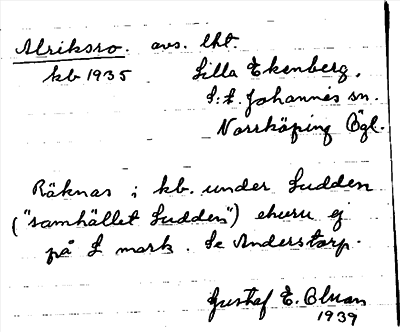 Alriksro. avs. lht.
kb 1935 Lilla Ekenberg,
S:t Johannis sn.
Norrköping Ögl.
Räknas i kb. under Sudden
("samhället Sudden") ehuru ej
på S mark. Se Anderstorp.
Gustaf E. Olman
1939